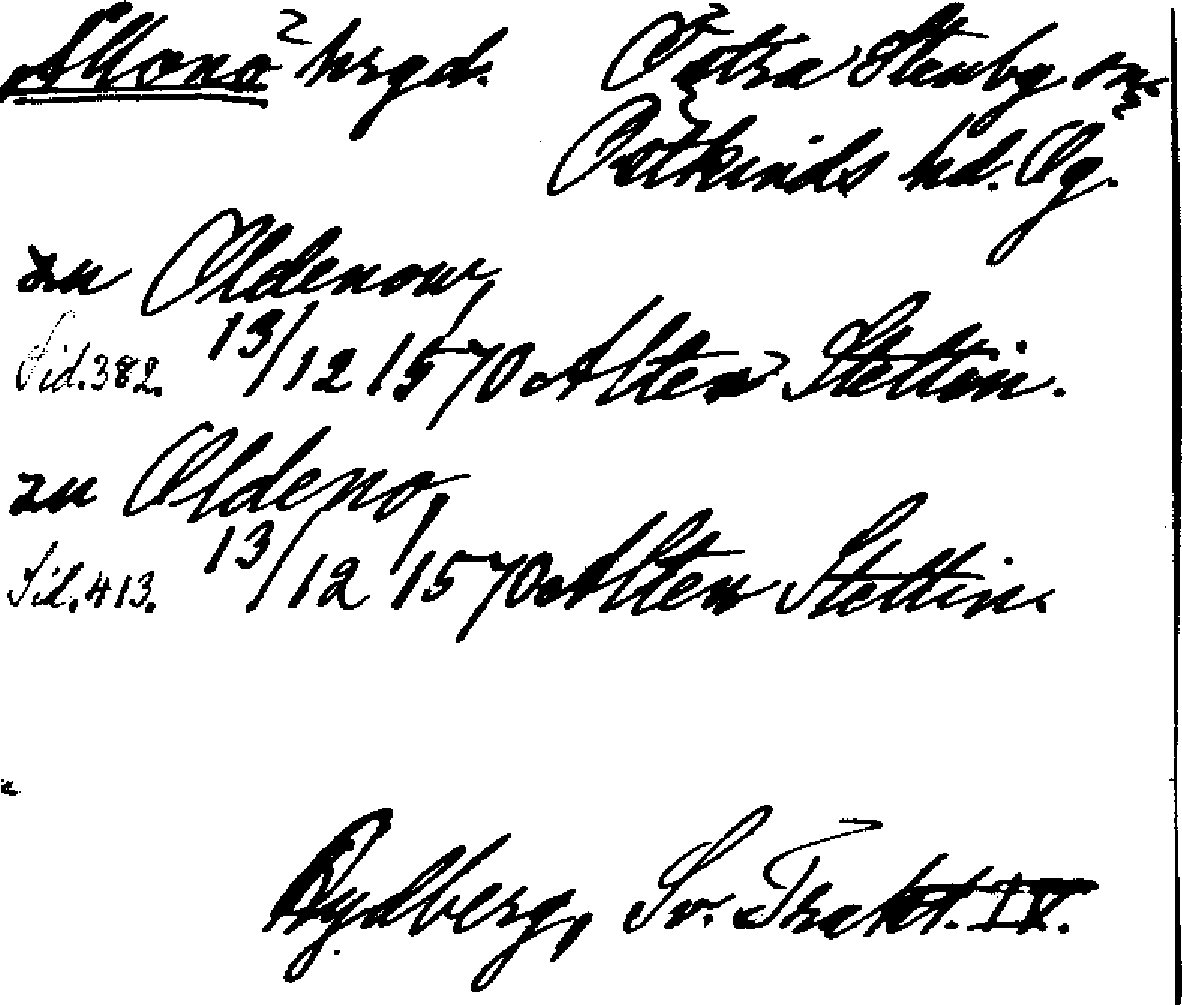 Allonö hrgd. Östra Stenby sn.
Östkinds hd. Ög.
zu Oldenow,
Sid.382. 13/12 1570 Alten Stettin.
zu Oldeno,
Sid.413. 13/12 1570 Alten Stettin.
Rydberg, Sv. Trakt. IV.